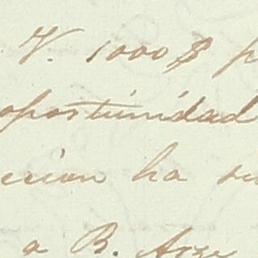 V. 1000 $ p
oportunidad
ccion ha su
a B. Arze